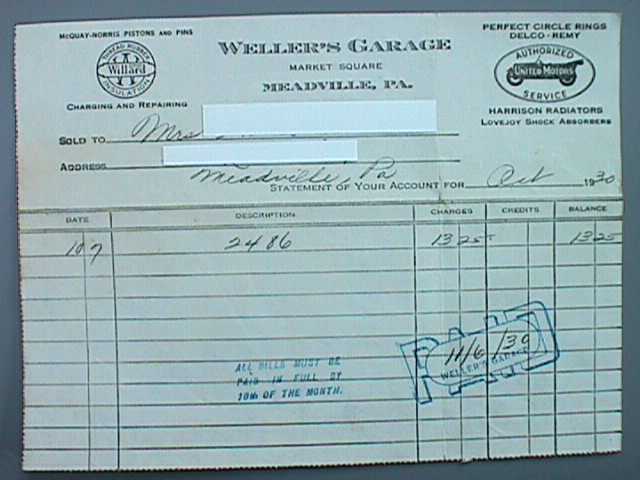 McQuay-Norris Pistons and Pins
THREAD RUBBER
Willard
INSULATION
Charging and Repairing
WELLER'S GARAGE
MARKET SQUARE
MEADVILLE, PA.
PERFECT CIRCLE RINGS
DELCO-REMY
AUTHORIZED
UNITED MOTORS
SERVICE
HARRISON RADIATORS
LOVEJOY SHOCK ABSORBERS
SOLD TO Mrs
ADDRESS Meadville, Pa
STATEMENT OF YOUR ACCOUNT FOR Oct 1930
DATE DESCRIPTION CHARGES CREDITS BALANCE
10 7 2486 13 25 13 25
ALL BILLS MUST BE
PAID IN FULL BY
10th OF THE MONTH.
PAID
11/6/30
WELLER'S GARAGE